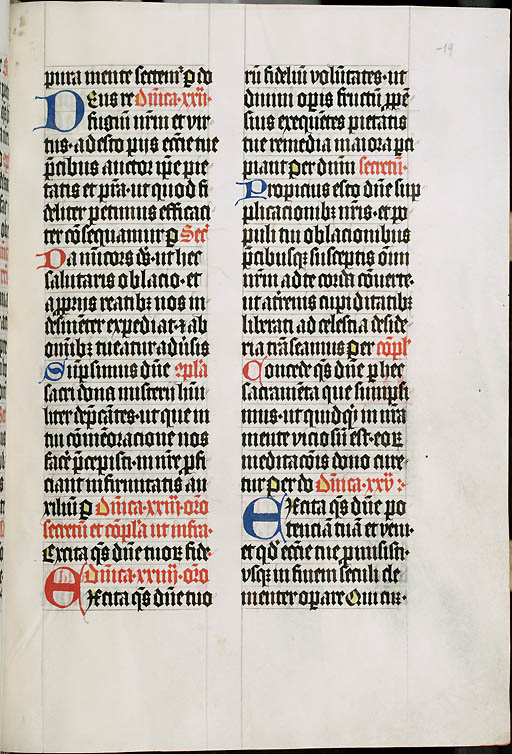 pura mente sectemʳ p do
Deus re Dn̄ica·xxij·
fugiū nr̄m et vir
tus·adesto pijs eccīe tue
p̄cibus auctor ip̄e pie
tatis et p̄ta·ut quod fi
deliter petimus efficaci
ter cōsequamur p Secʳ
Da mīcors d̄s·ut hec
salutaris oblacio·et
a p̄prijs reatibꝫ nos in
desinēter expediat·⁊ ab
om̄ibꝫ tueatur adūsis
Sūpsimus dn̄e 9pl̄a
sacri dona misterij hūi
liter dep̄cātes·ut que in
tui cōmēoracione nos
facē p̄cepisti·in nr̄e p̄fi
ciant infirmitatis au
xiliū p Dn̄ica·xxiij·or̄o
secretū et cōpl̄a ut infra·
Excita q̄s dn̄e tuoꝝ fide
Dn̄ica·xxiiij·or̄o
Excita q̄s dn̄e tuo
rū fideliū volūtates·ut
diuini op̄is fructū p̄pē
sius exequētes pietatis
tue remedia maiora p̄ci
piant per dnm̄ secretū·
Propicius esto dn̄e sup
plicacionibꝫ nr̄is·et po
puli tui oblacionibus
p̄cibusqꝫ susceptis oīm
nr̄m ad te corda cōuerte·
ut a tr̄enis cupiditatibꝫ
liberati ad celestia deside
ria trāseamus per cōpl̄
Concede q̄s dn̄e p hec
sacramēta que sūpsi
mus·ut quidqͥd in nr̄a
mente viciosū est·eoꝝ
meditacōis dono cure
tur per do Dn̄ica·xxv·
Excita q̄s dn̄e po
tenciā tuā et veni·
et qd̓ eccīe tue p̄misisti·
usqꝫ in finem seculi cle
menter op̄are Qui cū·
19